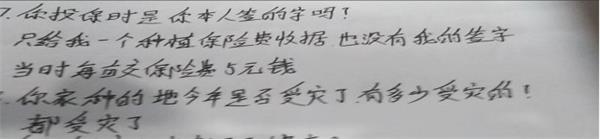 7.你投保时是你本人签的字吗!
只给我一个种植保险费收据 也没有我的签字
当时每亩交保险费5元钱
你家种的地今年是否受灾了 有多少受灾的!
都受灾了